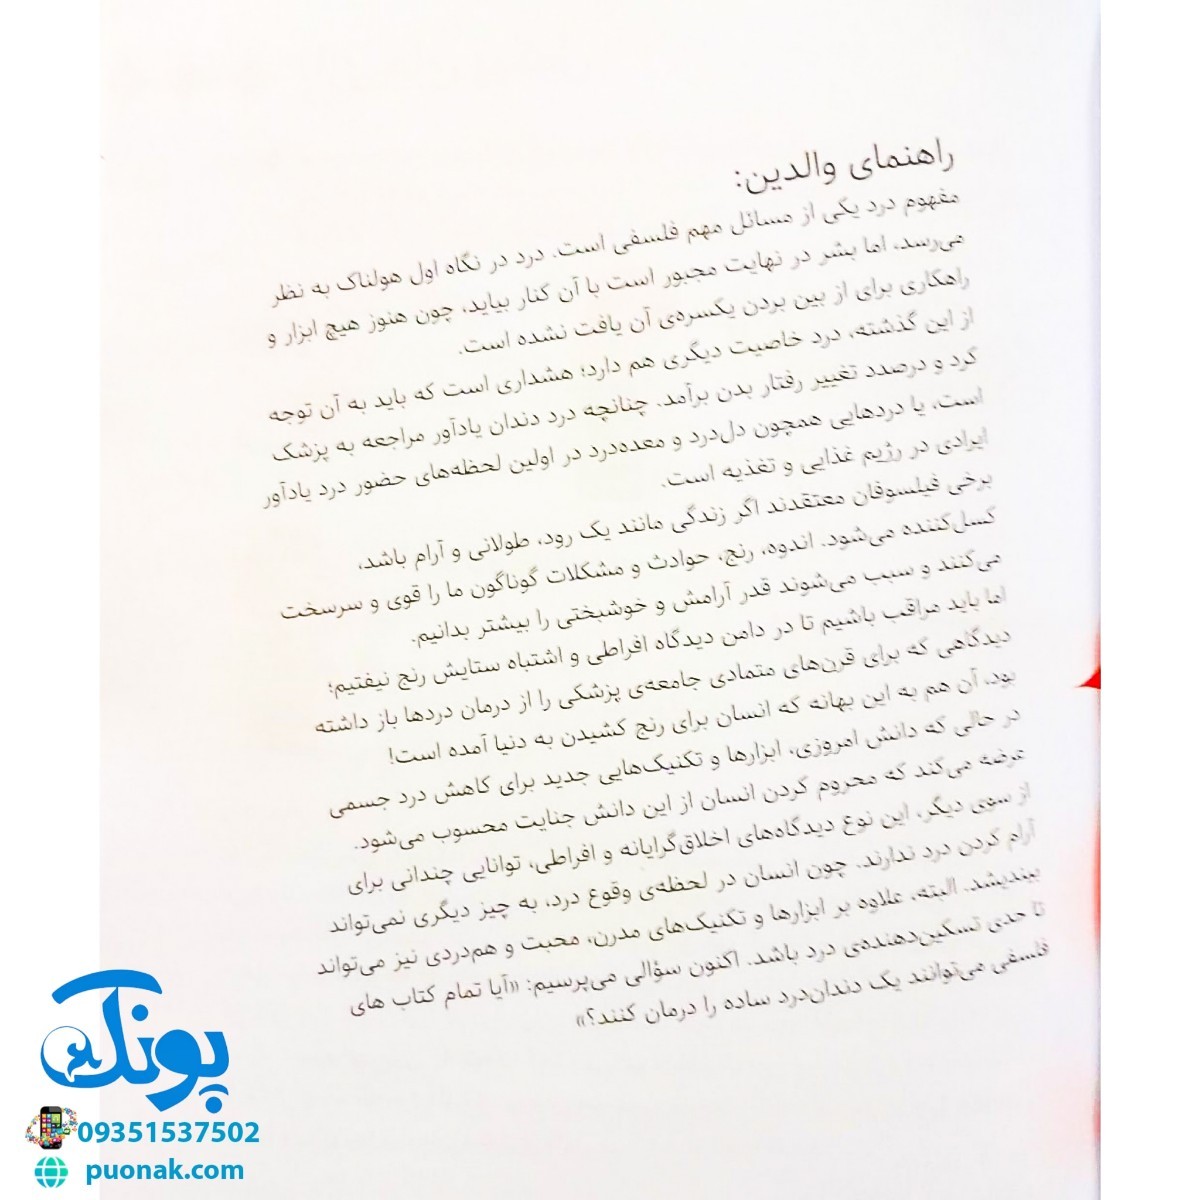 راهنمای والدین:
مفهوم درد یکی از مسائل مهم فلسفی است. درد در نگاه اول هولناک به نظر
می‌رسد، اما بشر در نهایت مجبور است با آن کنار بیاید، چون هنوز هیچ ابزار و
راهکاری برای از بین بردن یکسره‌ی آن یافت نشده است.
از این گذشته، درد خاصیت دیگری هم دارد؛ هشداری است که باید به آن توجه
کرد و درصدد تغییر رفتار بدن برآمد. چنانچه درد دندان یادآور مراجعه به پزشک
است، یا دردهایی همچون دل‌درد و معده‌درد در اولین لحظه‌های حضور درد یادآور
ایرادی در رژیم غذایی و تغذیه است.
برخی فیلسوفان معتقدند اگر زندگی مانند یک رود، طولانی و آرام باشد،
کسل‌کننده می‌شود. اندوه، رنج، حوادث و مشکلات گوناگون ما را قوی و سرسخت
می‌کنند و سبب می‌شوند قدر آرامش و خوشبختی را بیشتر بدانیم.
اما باید مراقب باشیم تا در دامن دیدگاه افراطی و اشتباه ستایش رنج نیفتیم؛
دیدگاهی که برای قرن‌های متمادی جامعه‌ی پزشکی را از درمان دردها باز داشته
بود، آن هم به این بهانه که انسان برای رنج کشیدن به دنیا آمده است!
در حالی که دانش امروزی، ابزارها و تکنیک‌هایی جدید برای کاهش درد جسمی
عرضه می‌کند که محروم کردن انسان از این دانش جنایت محسوب می‌شود.
از سوی دیگر، این نوع دیدگاه‌های اخلاق‌گرایانه و افراطی، توانایی چندانی برای
آرام کردن درد ندارند. چون انسان در لحظه‌ی وقوع درد، به چیز دیگری نمی‌تواند
بیندیشد. البته، علاوه بر ابزارها و تکنیک‌های مدرن، محبت و هم‌دردی نیز می‌تواند
تا حدی تسکین‌دهنده‌ی درد باشد. اکنون سؤالی می‌پرسیم: «آیا تمام کتاب های
فلسفی می‌توانند یک دندان‌درد ساده را درمان کنند؟»
پونک
09351537502
puonak.com